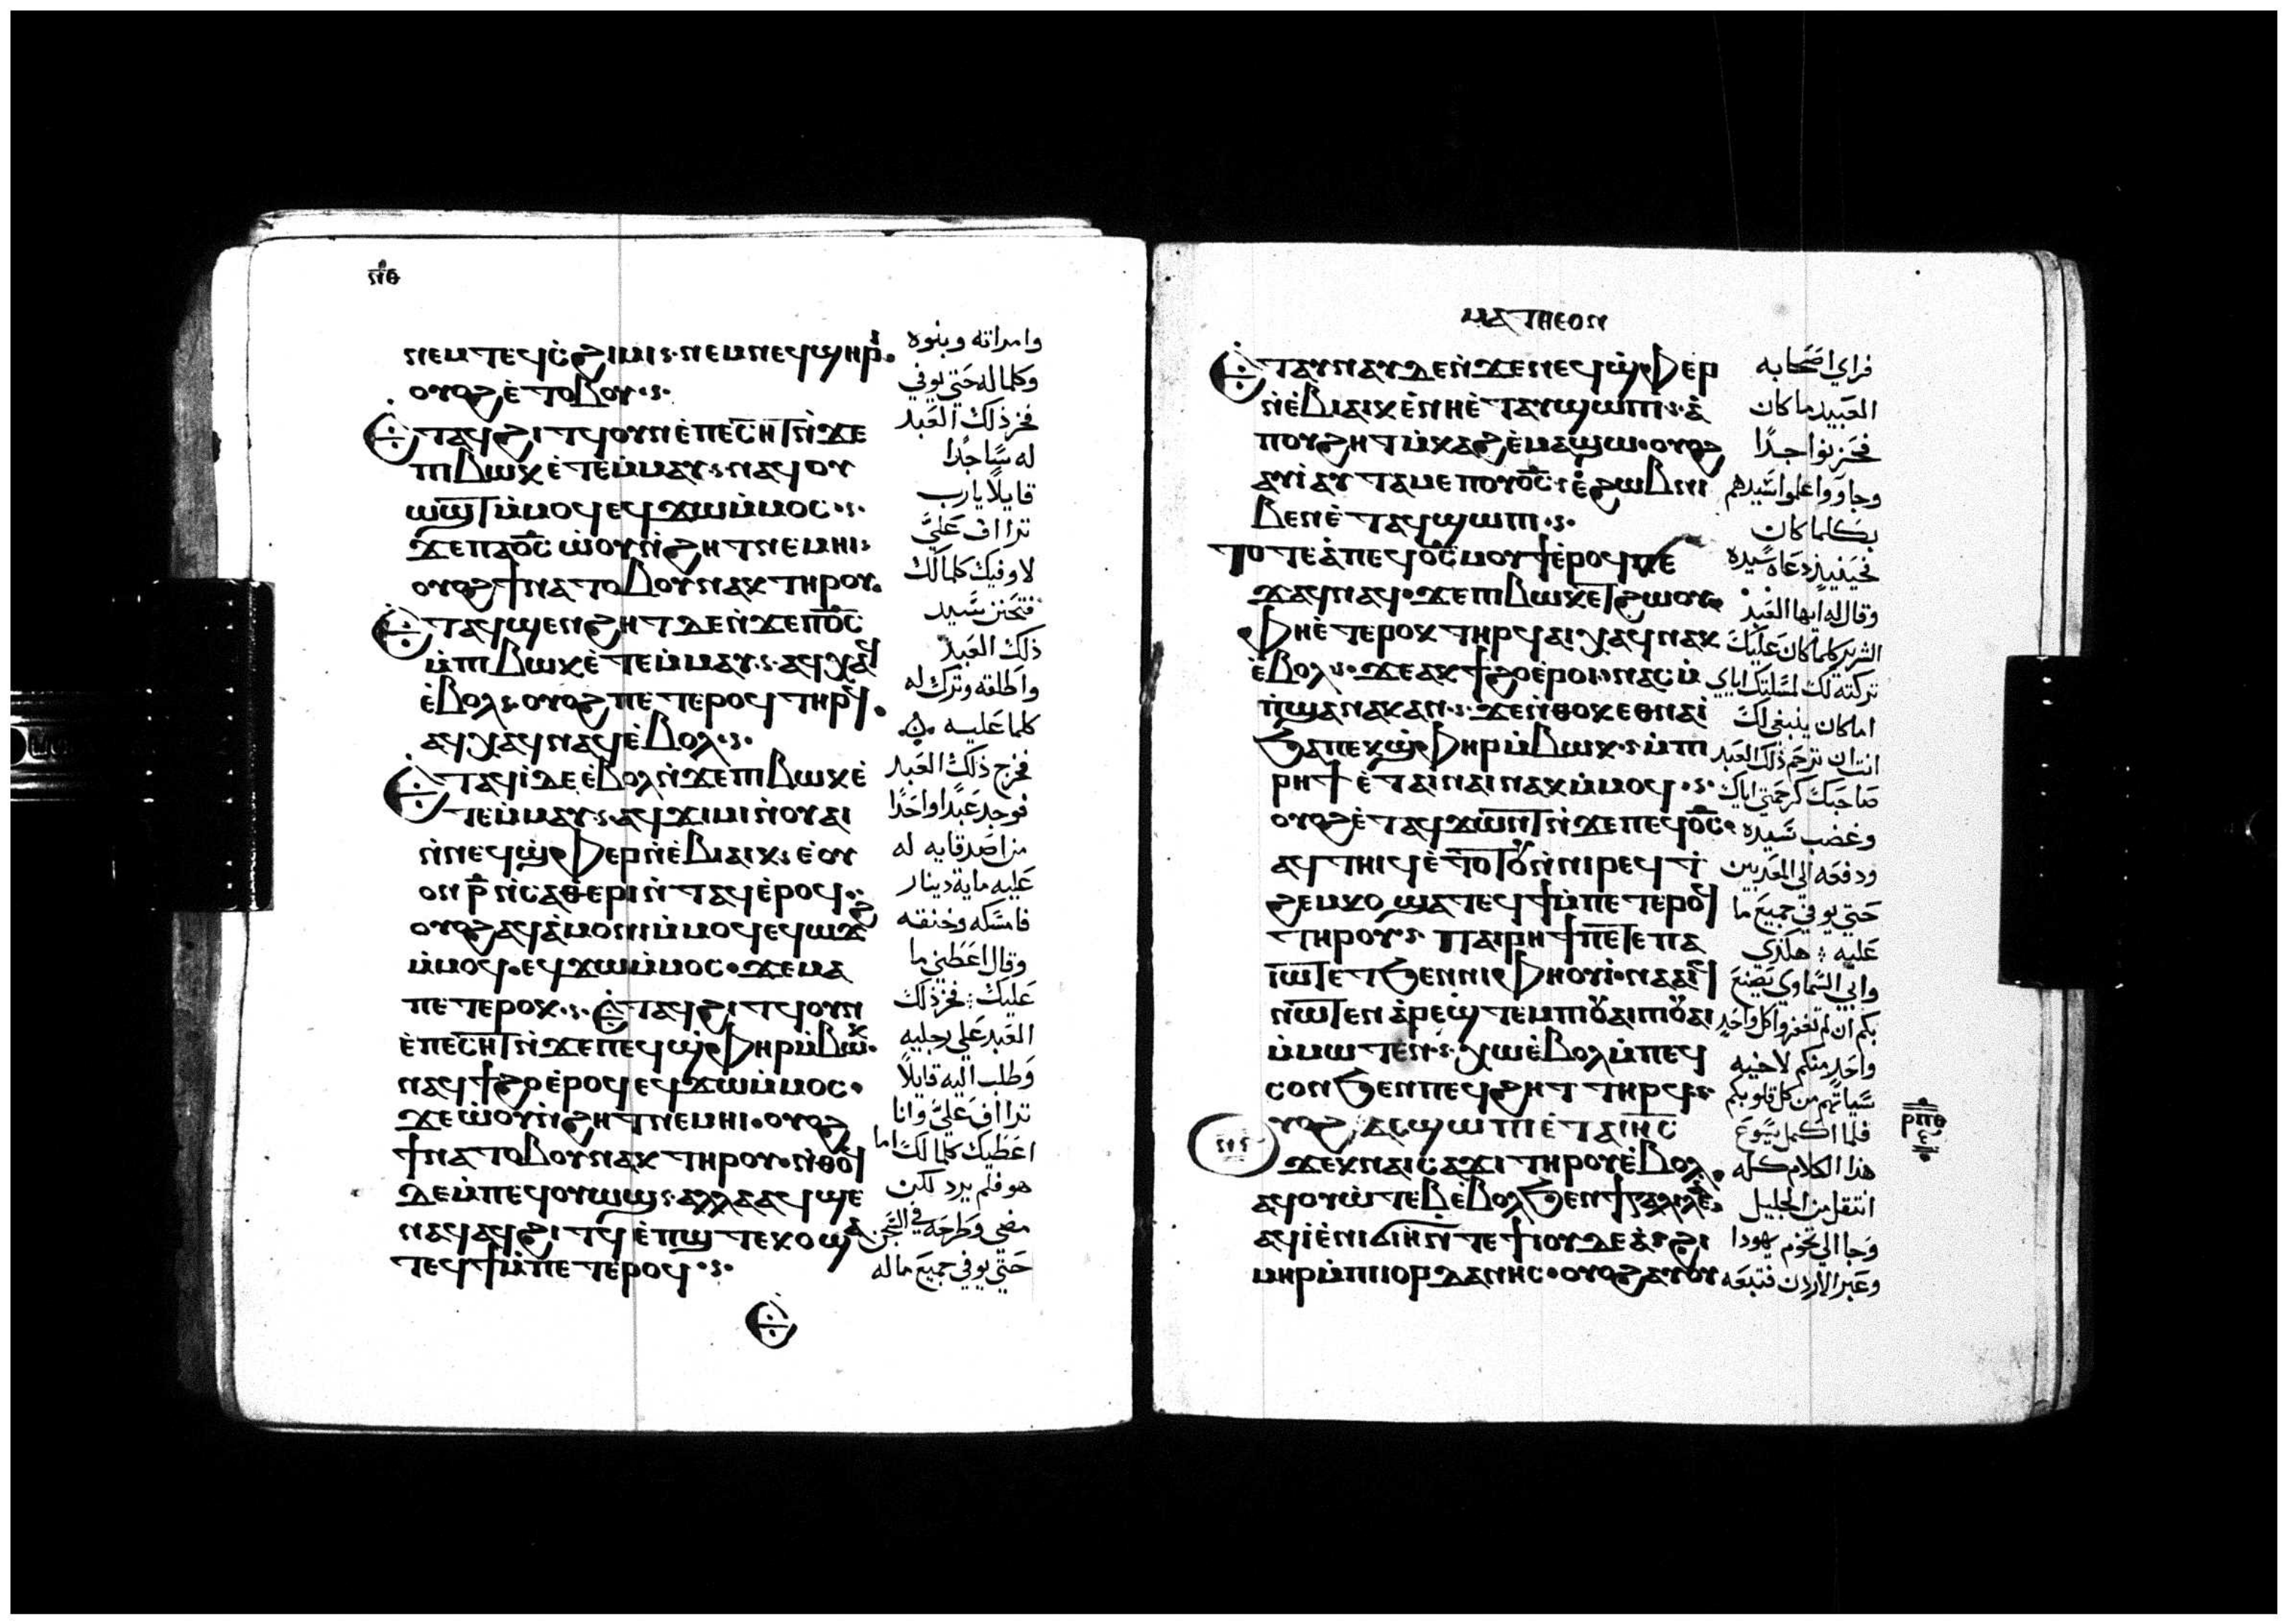 ⲛⲑ
ⲛⲉⲙⲧⲉϥⲥ̇ϩⲓⲙⲓ·ⲛⲉⲙⲛⲉϥϣⲏⲣⲓ
ⲟⲩⲟϩⲉ̇ⲧⲟⲃⲟⲩ
ⲉ̇ⲧⲁϥϩⲓⲧϥⲟⲩⲛⲉ̇ⲡⲉⲥⲏⲧⲛ̇ϫⲉ
ⲡⲓⲃⲱⲕⲉ̇ⲧⲉⲙ̇ⲙⲁⲩ·ⲛⲁϥⲟⲩ
ⲱϣⲧⲙ̇ⲙⲟϥⲉϥϫⲱⲙ̇ⲙⲟⲥ
ϫⲉⲡⲁⲟ̅ⲥ̅ⲱ̇ⲟⲩⲛ̇ϩⲏⲧⲛⲉⲙⲏⲓ
ⲟⲩⲟϩϯⲛⲁⲧⲟⲃⲟⲩⲛⲁⲕⲧⲏⲣⲟⲩ
ⲉ̇ⲧⲁϥϣⲉⲛϩⲏⲧⲇⲉⲛ̇ϫⲉⲡⲟ̅ⲥ̅
ⲙ̇ⲡⲓⲃⲱⲕⲉ̇ⲧⲉⲙ̇ⲙⲁⲩ·ⲁϥⲭⲁϥ
ⲉ̇ⲃⲟⲗ·ⲟⲩⲟϩⲡⲉⲧⲉⲣⲟϥⲧⲏⲣϥ
ⲁϥⲭⲁϥⲛⲁϥⲉ̇ⲃⲟⲗ
ⲉ̇ⲧⲁϥⲓ̇ⲇⲉⲉ̇ⲃⲟⲗⲛ̇ϫⲉⲡⲓⲃⲱⲕⲉ̇
ⲧⲉⲙ̇ⲙⲁⲩ·ⲁϥϫⲓⲙⲓⲛ̇ⲟⲩⲁⲓ
ⲛ̇ⲛⲉϥϣ̇ⲫⲉⲣⲛ̇ⲉ̇ⲃⲓⲁⲓⲕ·ⲉ̇ⲟⲩ
ⲟⲛⲣ̅ⲛ̇ⲥⲁⲑⲉⲣⲓⲛ̇ⲧⲁϥⲉ̇ⲣⲟϥ
ⲟⲩⲟϩⲁϥⲁ̇ⲙⲟⲛⲓⲙ̇ⲙⲟϥⲉϥⲱϫϩ
ⲙ̇ⲙⲟϥ·ⲉϥϫⲱⲙ̇ⲙⲟⲥ·ϫⲉⲙⲁ
ⲡⲉⲧⲉⲣⲟⲕ·ⲉ̇ⲧⲁϥϩⲓⲧϥⲟⲩⲛ
ⲉ̇ⲡⲉⲥⲏⲧⲛ̇ϫⲉⲡⲉϥϣ̇ⲫⲏⲣⲙ̇ⲃⲱⲕ
ⲛⲁϥϯϩⲟⲉ̇ⲣⲟϥⲉϥϫⲱⲙ̇ⲙⲟⲥ
ϫⲉⲱ̇ⲟⲩⲛ̇ϩⲏⲧⲛⲉⲙⲏⲓ·ⲟⲩⲟϩ
ϯⲛⲁⲧⲟⲃⲟⲩⲛⲁⲕⲧⲏⲣⲟⲩ·ⲛ̇ⲑⲟϥ
ⲇⲉⲙ̇ⲡⲉϥⲟⲩⲱϣ·ⲁⲗⲗⲁⲁϥϣⲉ
ⲛⲁϥⲁϥϩⲓⲧϥⲉ̇ⲡϣⲧⲉⲕⲟϣⲁ
ⲧⲉϥϯⲙ̇ⲡⲉⲧⲉⲣⲟϥ
وامراته وبنوه
وكلما له حتي يوفي
فخر ذلك العبد
له ساجدا
قايلا يارب
تراأف علي
لاوفيك كلمالك
فتحنن سيد
ذلك العبد
واطلقه وترك له
كلما عليه
فخرج ذلك العبد
فوجد عبدا واحدا
من اصدقايه له
عليه ماية دينار
فامسكه وخنقه
وقال اعطني ما
عليك فخر ذلك
العبد علي رجليه
وطلب اليه قايلا
تراأف علي وانا
اعطيك كلما لك اما
هو فلم يرد لكن
مضي وطرحه في السجن
حتي يوفي جميع ماله
ⲙⲁⲧⲑⲉⲟⲛ
ⲉ̇ⲧⲁⲩⲛⲁⲩⲇⲉⲛ̇ϫⲉⲛⲉϥϣ̇ⲫⲉⲣ
ⲛ̇ⲉ̇ⲃⲓⲁⲓⲕⲉ̇ⲛⲏⲉ̇ⲧⲁⲩϣⲱⲡⲓ·ⲁ̇
ⲡⲟⲩϩⲏⲧⲙ̇ⲕⲁϩⲉ̇ⲙⲁϣⲱ·ⲟⲩⲟϩ
ⲁⲩⲓ̇ⲁⲩⲧⲁⲙⲉⲡⲟⲩⲟ̅ⲥ̅·ⲉ̇ϩⲱⲃⲛⲓ
ⲃⲉⲛⲉ̇ⲧⲁϥϣⲱⲡⲓ
ⲧⲟⲧⲉⲁ̇ⲡⲉϥⲟ̅ⲥ̅ⲙⲟⲩϯⲉ̇ⲣⲟϥⲡⲉ
ϫⲁϥⲛⲁϥ·ϫⲉⲡⲓⲃⲱⲕⲉⲧϩⲱⲟⲩ
ⲫⲏⲉ̇ⲧⲉⲣⲟⲕⲧⲏⲣϥⲁⲓⲭⲁϥⲛⲁⲕ
ⲉ̇ⲃⲟⲗ·ϫⲉⲁⲕϯϩⲟⲉ̇ⲣⲟⲓ·ⲛⲁⲥⲙ̇
ⲡ̇ϣⲁⲛⲁⲕⲁⲛ·ϫⲉⲛ̇ⲑⲟⲕⲉⲑⲛⲁⲓ
ϧⲁⲡⲉⲕϣ̇ⲫⲏⲣⲙ̇ⲃⲱⲕ·ⲙ̇ⲡⲓ
ⲣⲏϯⲉ̇ⲧⲁⲓⲛⲁⲓⲛⲁⲕⲙ̇ⲙⲟϥ
ⲟⲩⲟϩⲉ̇ⲧⲁϥϫⲱⲛⲧⲛ̇ϫⲉⲡⲉϥⲟ̅ⲥ̅
ⲁϥⲧⲏⲓϥⲉ̇ⲧⲟⲧⲟⲩⲛ̇ⲛⲓⲣⲉϥϯ
ϩⲉⲙⲕⲟϣⲁⲧⲉϥϯⲙ̇ⲡⲉⲧⲉⲣⲟϥ
ⲧⲏⲣⲟⲩ·ⲡⲁⲓⲣⲏϯⲡⲉⲧⲉⲡⲁ
ⲓⲱⲧⲉⲧϧⲉⲛⲛⲓⲫⲏⲟⲩⲓ·ⲛⲁⲁⲓϥ
ⲛⲱⲧⲉⲛⲁ̇ⲣⲉϣ̇ⲧⲉⲙⲡⲓⲟⲩⲁⲓⲡⲓⲟⲩⲁⲓ
ⲙ̇ⲙⲱⲧⲉⲛ·ⲭⲱⲉ̇ⲃⲟⲗⲙ̇ⲡⲉϥ
ⲥⲟⲛϧⲉⲛⲡⲉϥϩⲏⲧⲧⲏⲣϥ
ⲟⲩⲟϩⲁⲥϣⲱⲡⲓⲉ̇ⲧⲁⲓⲏ̅ⲥ̅
ϫⲉⲕⲛⲁⲓⲥⲁϫⲓⲧⲏⲣⲟⲩⲉ̇ⲃⲟⲗ
ⲁϥⲟⲩⲱ̇ⲧⲉⲃⲉ̇ⲃⲟⲗϧⲉⲛϯⲅⲁⲗⲓⲗⲉⲁ
ⲁϥⲓ̇ⲉ̇ⲛⲓϭⲓⲏⲛⲧⲉϯⲓⲟⲩⲇⲉⲁ·ϩⲓ
ⲙⲏⲣⲙ̇ⲡⲓⲓⲟⲣⲇⲁⲛⲏⲥ·ⲟⲩⲟϩⲁⲩⲟⲩ
فراي اصحابه
العبيد ما كان
فحزنوا جدا
وجاووا اعلموا سيدهم
بكلما كان
فحينيذ دعاه سيده
وقال له ايها العبد
الشرير كلما كان عليك
تركته لك لمسلتك اياي
اما كان ينبغي لك
انت ان ترحم ذلك العبد
صاحبك كرحمتي اياك
وغضب سيده
ودفعه الي المعذبين
حتي يوفي جميع ما
عليه هكذي
وابي السماوي يصنع
بكم ان لم تغفروا كل واحد
واحد منكم لاخيه
سياتهم من كل قلوبكم
فلما اكمل يسوع
هذا الكلام كله
انتقل من الجليل
وجا الي تخوم يهودا
وعبر الاردن فتبعه
ⲣⲡⲑ